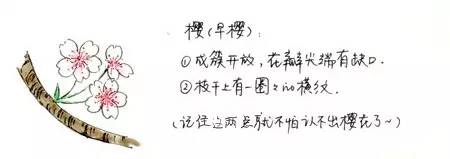 樱(早樱):
①成簇开放,在瓣尖端有缺口.
②枝干上有一圈々的横纹.
(记住这两点就不怕认不出樱花了~)